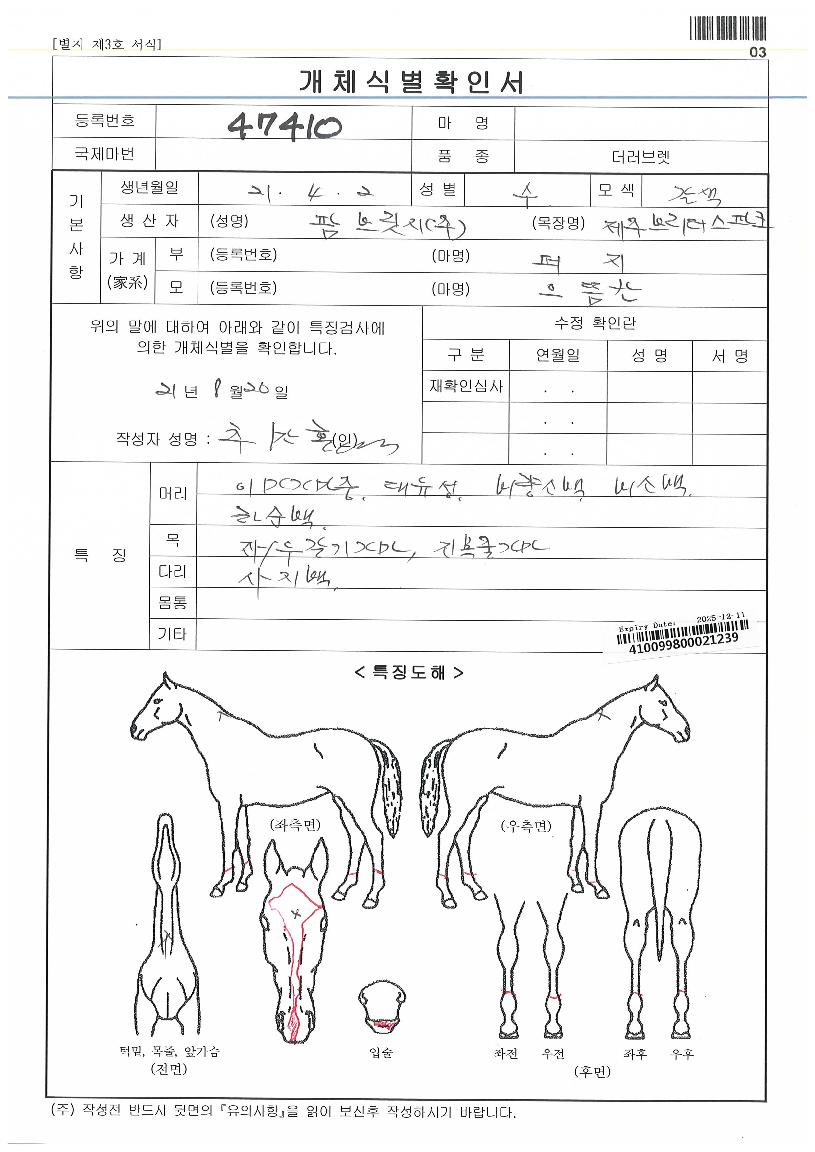 [별지 제3호 서식]
03
개체식별확인서
등록번호 47410 마 명
국제마번 품 종 더러브렛
기본사항
생년월일 21. 4. 2 성별 수 모색 갈색
생산자 (성명) 팜 브릿지(주) (목장명) 제주브리더스파크
가계(家系) 부 (등록번호) (마명) 퍼지
모 (등록번호) (마명) 으뜸찬
위의 말에 대하여 아래와 같이 특징검사에
의한 개체식별을 확인합니다.
21년 8월 20일
작성자 성명 : (인)
수정 확인란
구분 연월일 성명 서명
재확인심사 . .
. .
. .
특 징
머리 대유성, 비량소백, 비소백,
하순백,
목 좌/우
다리 사지백,
몸통
기타
Expiry Date: 2025-12-11
410099800021239
< 특징도해 >
(좌측면) (우측면)
턱밑, 목줄, 앞가슴
(전면)
입술
좌전 우전 좌후 우후
(후면)
(주) 작성전 반드시 뒷면의 『유의사항』을 읽어 보신후 작성하시기 바랍니다.